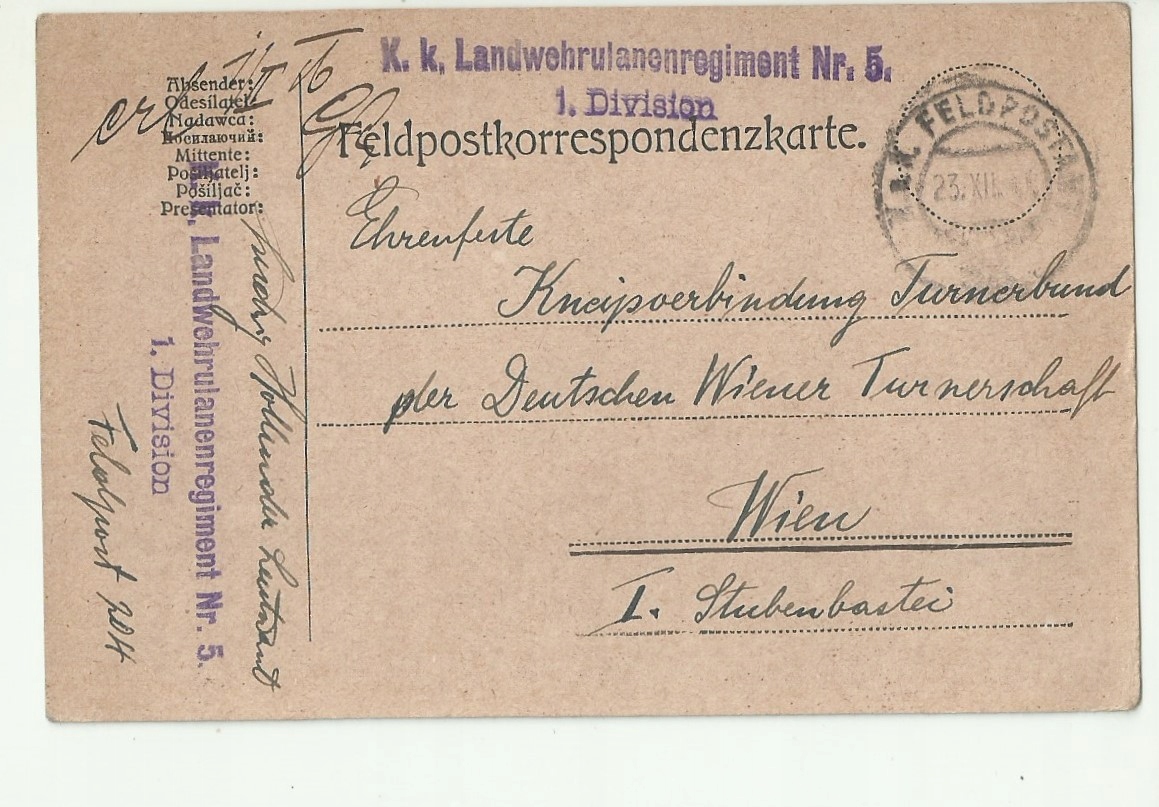 K. k. Landwehrulanenregiment Nr. 5.
1. Division
Feldpostkorrespondenzkarte.
K.u.K. FELDPOSTAMT
23. XII.
Absender:
Odesílatel:
Nadawca:
Посилаючий:
Mittente:
Pošiljatelj:
Pošiljač:
Presentator:
Ehrenfeste
Kneipverbindung Turnerbund
der Deutschen Wiener Turnerschaft
Wien
I. Stubenbastei
Leutnant
K. k. Landwehrulanenregiment Nr. 5.
1. Division
Feldpost 204